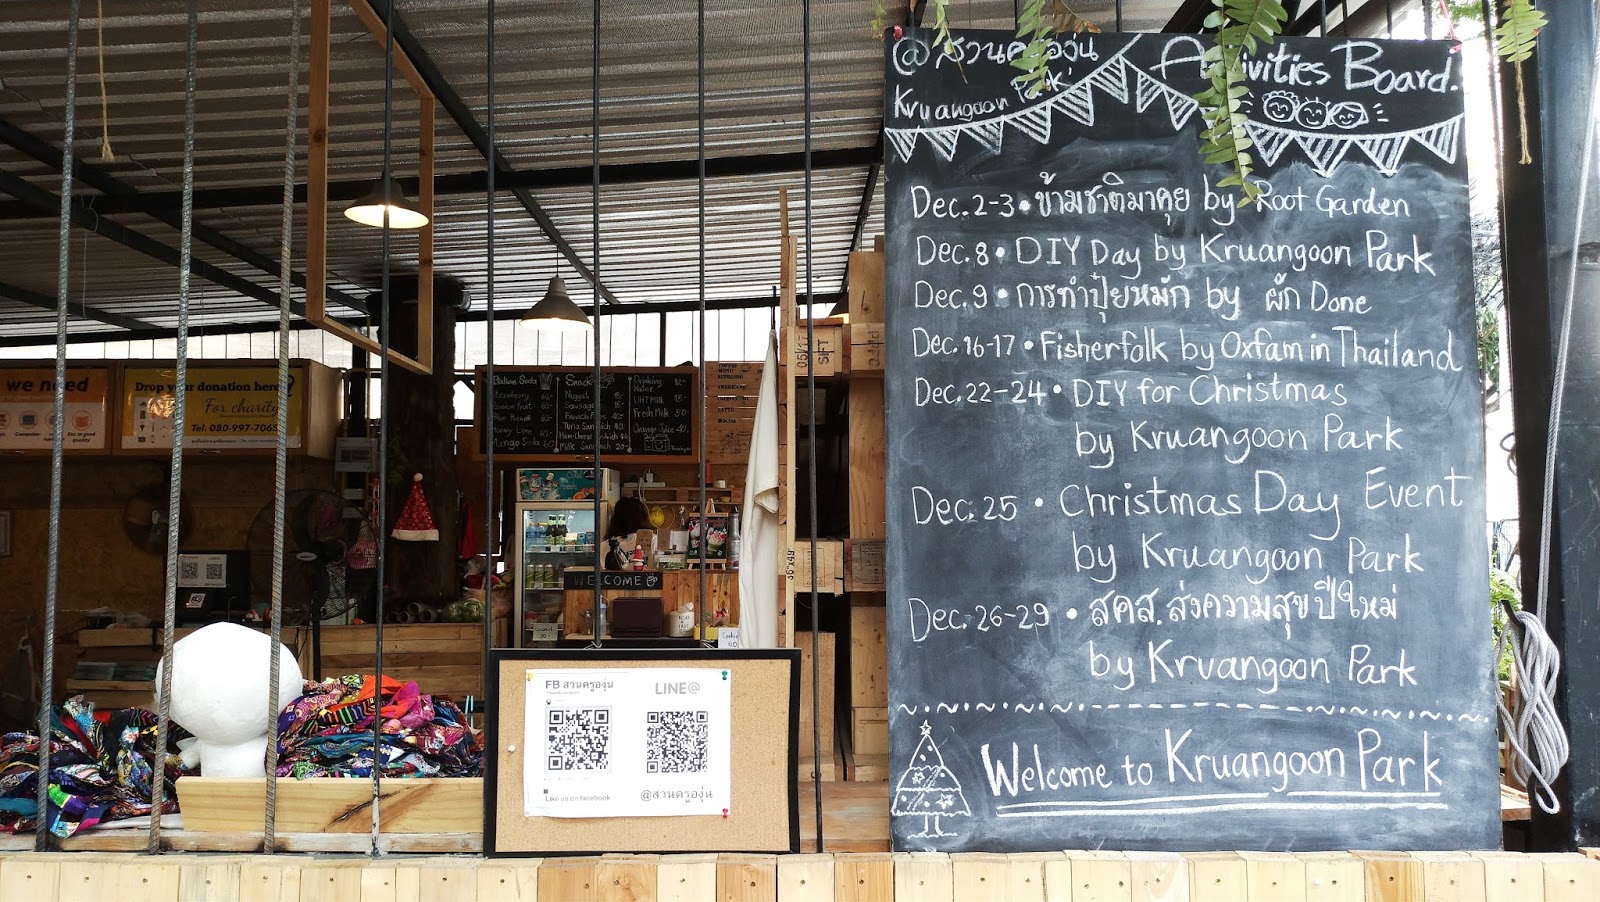 @สวนครูองุ่น
Kruangoon Park
Activities Board.
Dec. 2-3 • ข้ามชาติมาคุย by Root Garden
Dec. 8 • DIY Day by Kruangoon Park
Dec. 9 • การทำปุ๋ยหมัก by ผัก Done
Dec. 16-17 • Fisherfolk by Oxfam in Thailand
Dec. 22-24 • DIY for Christmas
by Kruangoon Park
Dec. 25 • Christmas Day Event
by Kruangoon Park
Dec. 26-29 • ส.ค.ส. ส่งความสุขปีใหม่
by Kruangoon Park
Welcome to Kruangoon Park
we need
Computer
Drop your donation here
For charity
Tel. 080-997-7065
Italian Soda
Mango Soda 60
Snack
Nugget
Sausage
French Fries
Tuna Sandwich
Ham-Cheese Sandwich
Milk Sandwich 20
Drinking Water
UHT Milk 15
Fresh Milk 50
Orange Juice 40
05/17
SIFT
36"x49"
WELCOME
FB สวนครูองุ่น
LINE@
Like us on facebook
@สวนครูองุ่น